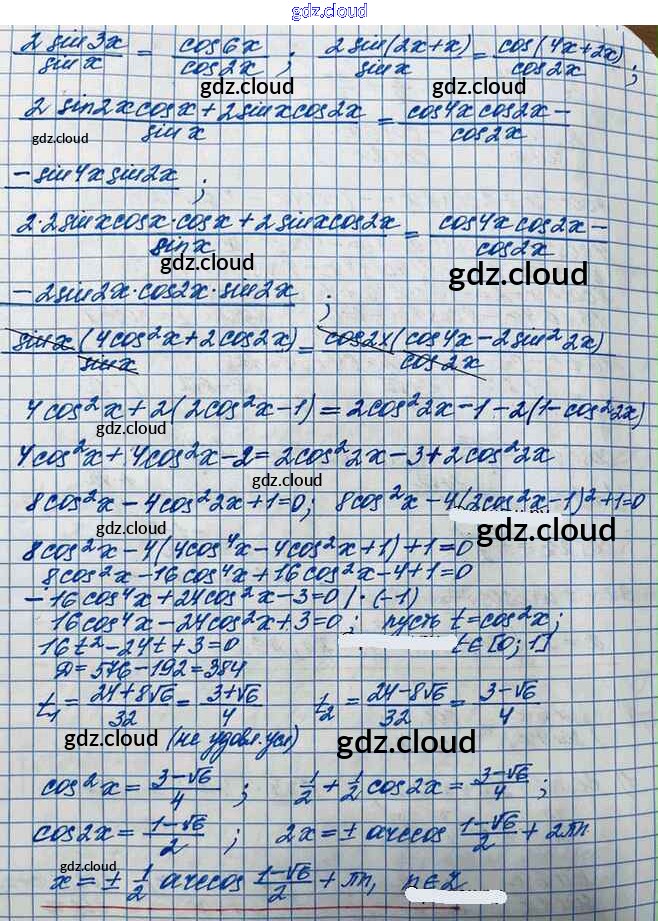 gdz.cloud
2 sin3x / sinx = cos6x / cos2x ; 2 sin(2x+x) / sinx = cos(4x+2x) / cos2x ;
gdz.cloud gdz.cloud
2 sin2x cosx + 2 sinx cos2x / sin x = cos4x cos2x − / cos2x
gdz.cloud
− sin4x sin2x ;
2·2 sinx cosx·cosx + 2 sinx cos2x / sinx = cos4x cos2x − / cos2x
gdz.cloud gdz.cloud
− 2 sin2x·cos2x·sin2x ;
sinx (4cos²x + 2cos2x) / sinx = cos2x (cos4x − 2 sin²2x) / cos2x
4cos²x + 2(2cos²x−1) = 2cos²2x − 1 − 2(1−cos²2x)
gdz.cloud
4cos²x + 4cos²x − 2 = 2cos²2x − 3 + 2cos²2x
gdz.cloud
8cos²x − 4cos²2x + 1 = 0 ; 8cos²x − 4(2cos²x−1)² + 1 = 0
gdz.cloud gdz.cloud
8cos²x − 4(4cos⁴x − 4cos²x + 1) + 1 = 0
8cos²x − 16cos⁴x + 16cos²x − 4 + 1 = 0
−16cos⁴x + 24cos²x − 3 = 0 | · (−1)
16cos⁴x − 24cos²x + 3 = 0 ; пусть t = cos²x ;
16t² − 24t + 3 = 0 t ∈ [0; 1]
D = 576 − 192 = 384
t₁ = 24+8√6 / 32 = 3+√6 / 4 t₂ = 24−8√6 / 32 = 3−√6 / 4
gdz.cloud (не удовл. усл) gdz.cloud
cos²x = 3−√6 / 4 ; 1/2 + 1/2 cos2x = 3−√6 / 4 ;
cos2x = 1−√6 / 2 ; 2x = ± arccos 1−√6 / 2 + 2πn
gdz.cloud
x = ± 1/2 arccos 1−√6 / 2 + πn, n ∈ Z
gdz.cloud